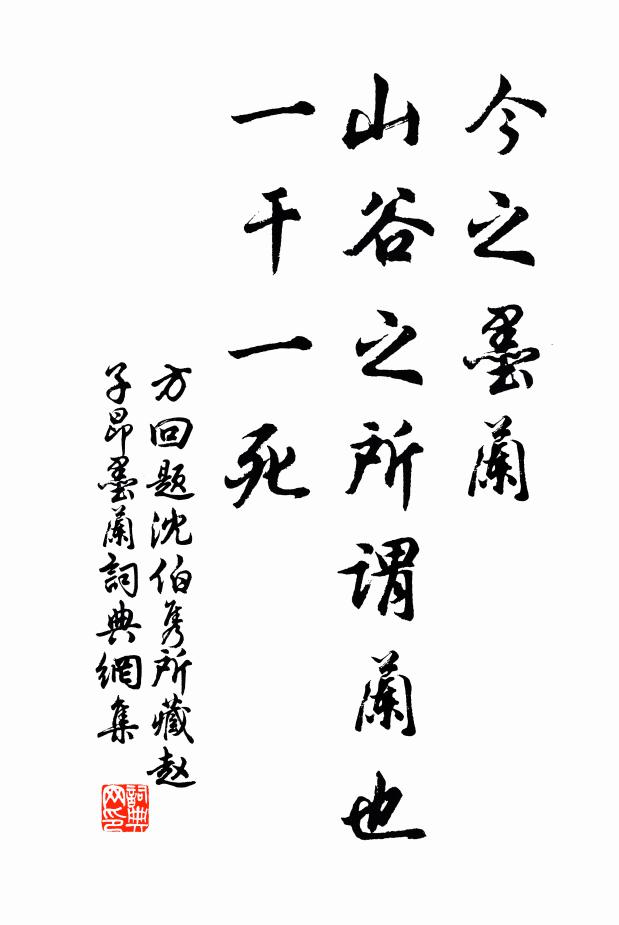 今之墨蘭
山谷之所謂蘭也
一干一死
方回题沈伯隽所藏赵
子昂墨蘭詞典網集
詞典网印